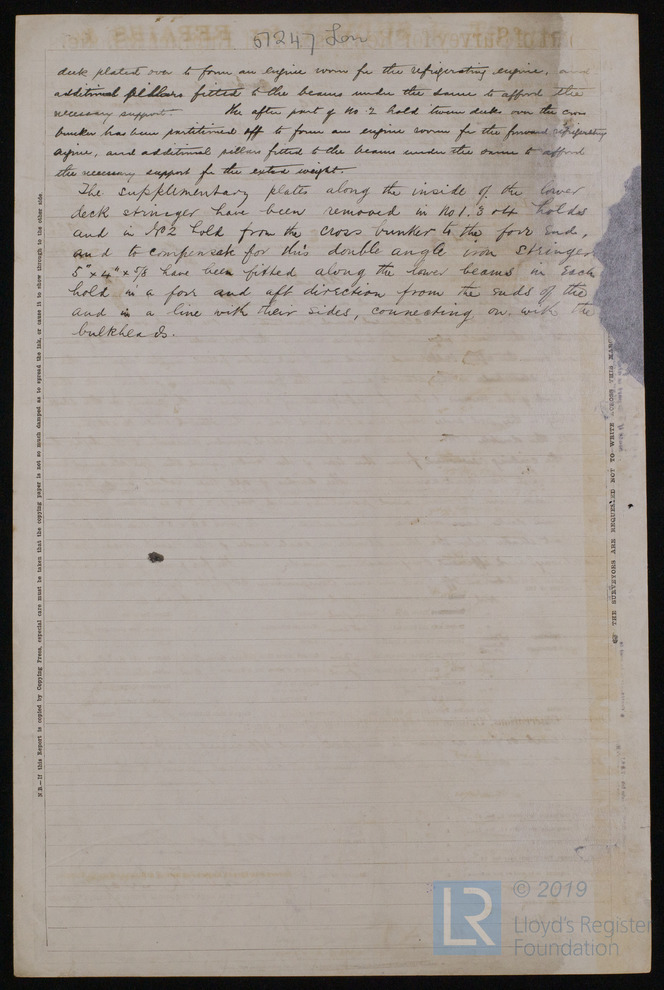 51247 Lon
deck plated over to form an engine room for the refrigerating engine, and
additional pillars fitted to the beams under the same to afford the
necessary support. The after part of No. 2 hold tween decks over the cross
bunker has been partitioned off to form an engine room for the forward refrigerating
engine, and additional pillars fitted to the beams under the same to afford
the necessary support for the extra weight.
The supplimentary plates along the inside of the lower
deck stringer have been removed in No 1. 3 & 4 holds
and in No 2 hold from the cross bunker to the fore end,
and to compensate for this double angle iron stringer
5" x 4" x 5/8 have been fitted along the lower beams in each
hold in a fore and aft direction from the ends of the
and in a line with their sides, connecting on with the
bulkheads.
N.B.—If this Report is copied by Copying Press, especial care must be taken that the copying paper is not so much damped as to spread the ink, or cause it to show through to the other side.
THE SURVEYORS ARE REQUESTED NOT TO WRITE ACROSS THIS MAR
LR
© 2019
Lloyd's Register
Foundation